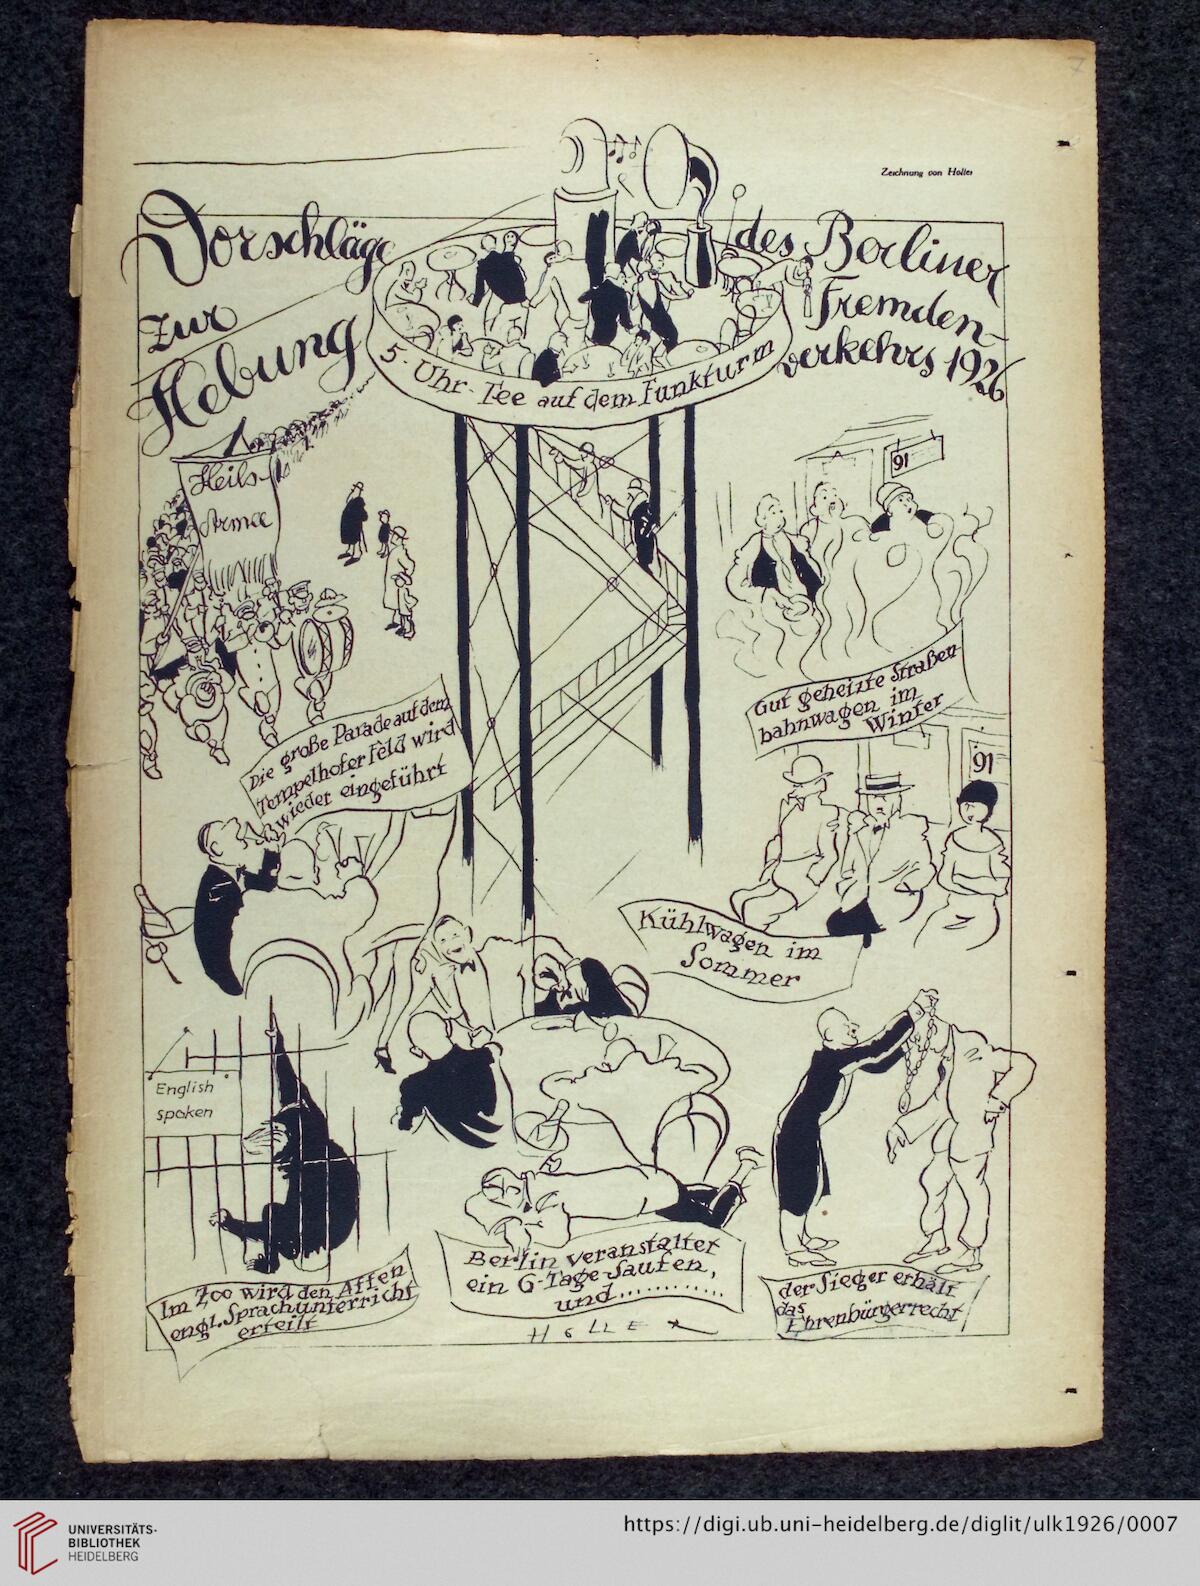 7
Zeichnung von Holler
Vorschläge
zur
Hebung
des Berliner
Fremden-
verkehrs 1926
5-Uhr-Tee auf dem Funkturm
Heils-
Armee
91
Gut geheizte Straßen
bahnwagen im
Winter
Die große Parade auf dem
Tempelhofer Feld wird
wieder eingeführt
91
Kühlwagen im
Sommer
English
spoken
Im Zoo wird den Affen
engl. Sprachunterricht
erteilt
Berlin veranstaltet
ein 6-Tage-Saufen,
und............
der Sieger erhält
das
Ehrenbürgerrecht
HOLLER
UNIVERSITÄTS-
BIBLIOTHEK
HEIDELBERG
https://digi.ub.uni-heidelberg.de/diglit/ulk1926/0007